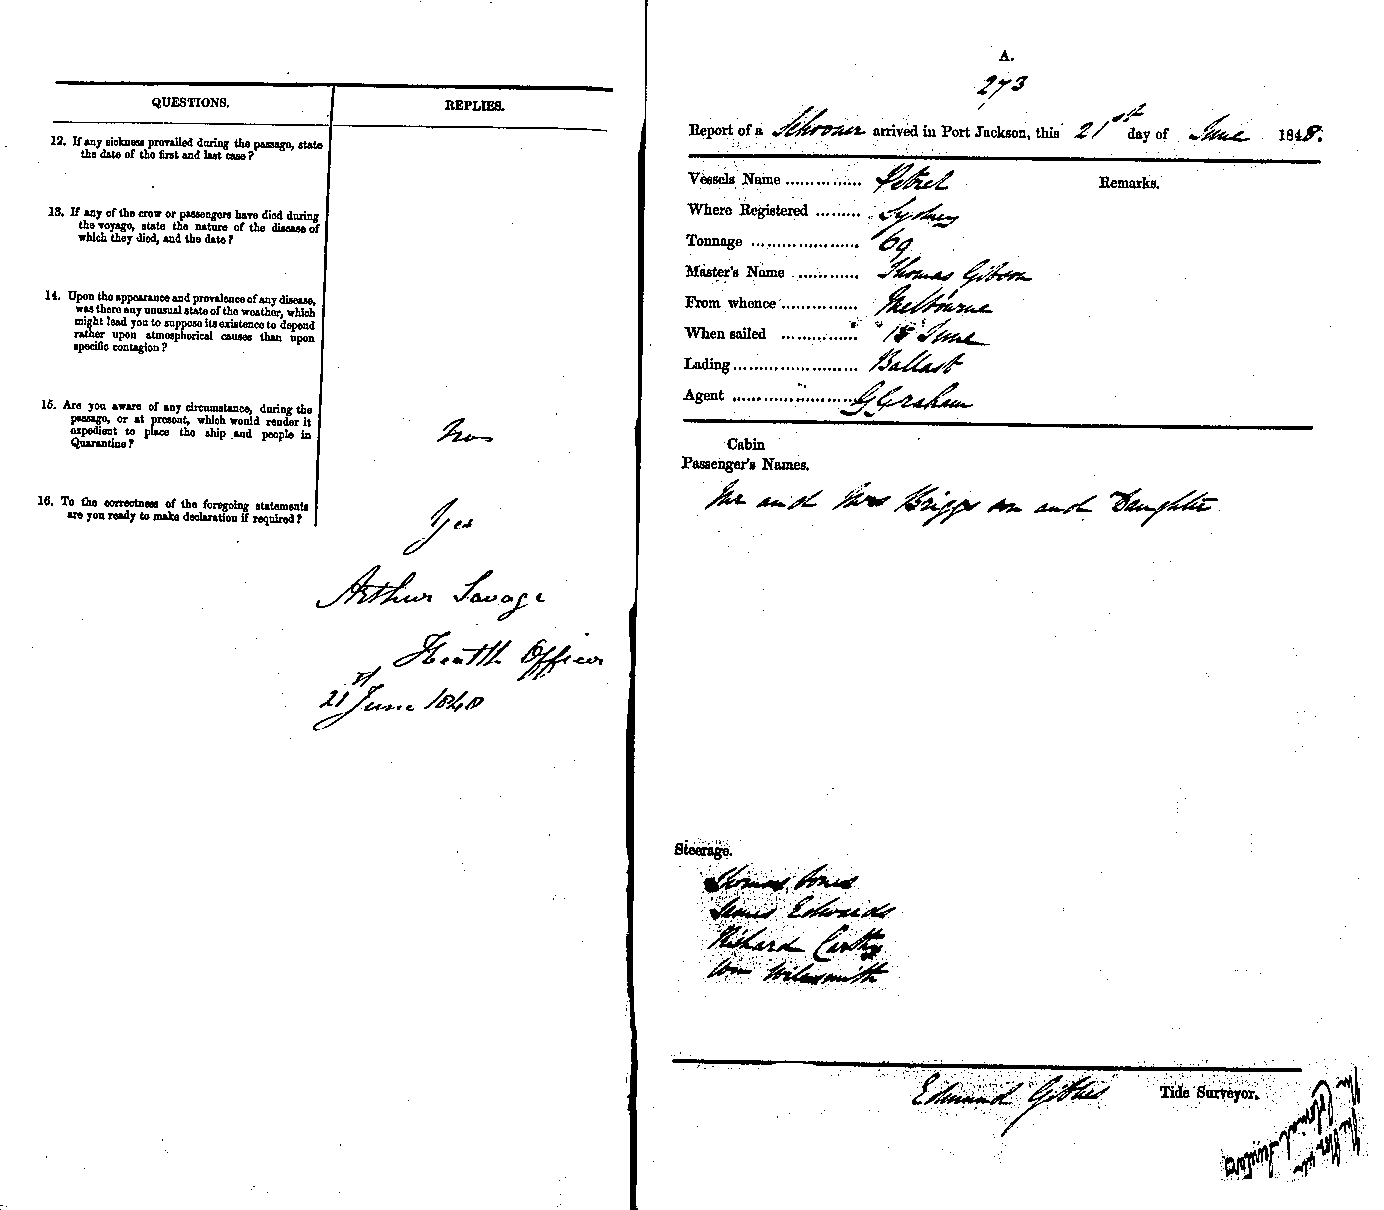 QUESTIONS.
REPLIES.
12. If any sickness prevailed during the passage, state
the date of the first and last case?
13. If any of the crew or passengers have died during
the voyage, state the nature of the disease of
which they died, and the date?
14. Upon the appearance and prevalence of any disease,
was there any unusual state of the weather, which
might lead you to suppose its existence to depend
rather upon atmospherical causes than upon
specific contagion?
15. Are you aware of any circumstance, during the
passage, or at present, which would render it
expedient to place the ship and people in
Quarantine?
No
16. To the correctness of the foregoing statements
are you ready to make declaration if required?
Yes
Arthur Savage
Health Officer
21st June 1848
A.
273
Report of a Schooner arrived in Port Jackson, this 21st day of June 1848.
Vessels Name .............. Petrel
Remarks.
Where Registered ......... Sydney
Tonnage .................... 69
Master's Name ........... Thomas Gibson
From whence .............. Melbourne
When sailed .............. 18 June
Lading ....................... Ballast
Agent ....................... G Graham
Cabin
Passenger's Names.
Mr and Mrs Briggs son and Daughter
Steerage.
Thomas Jones
James Edwards
Richard Carthy
Wm Wilesmith
Edmund Gibbes Tide Surveyor.
The Hon
Colonial